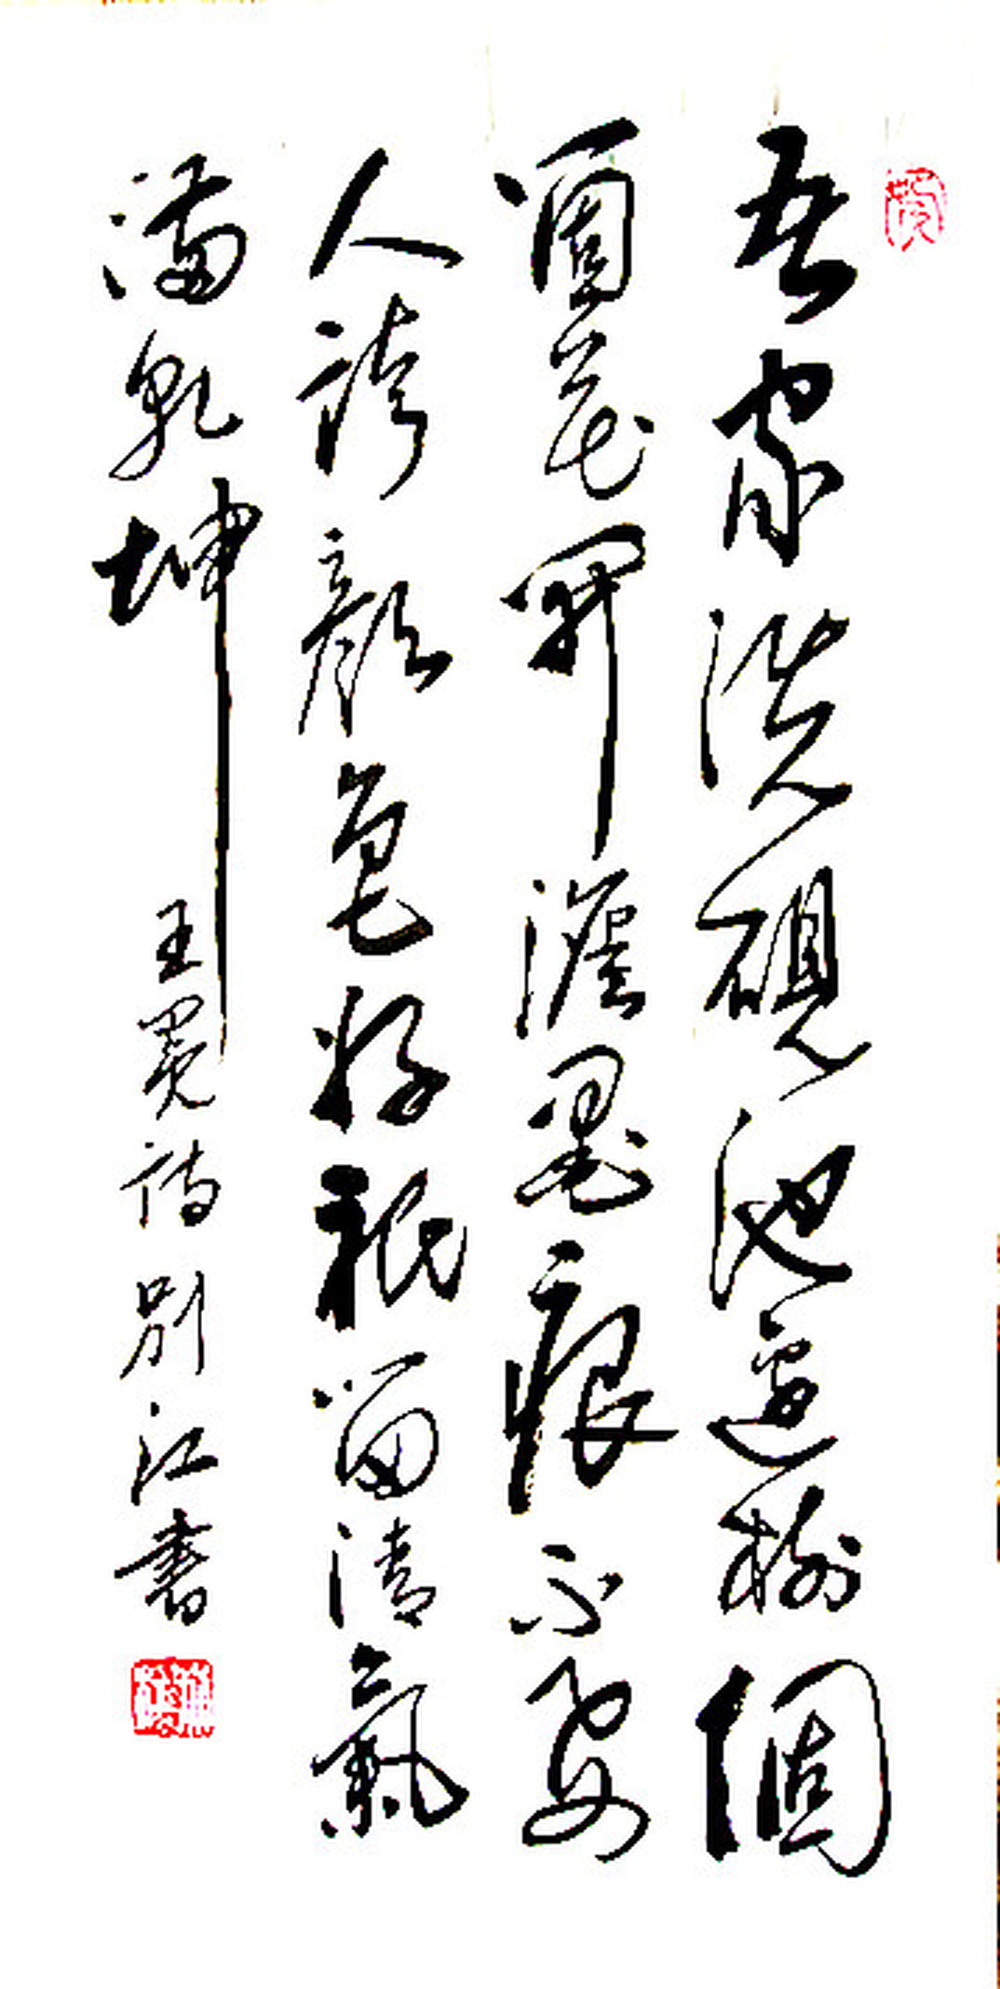 吾家洗硯池邊樹個
箇花開澹墨痕不要
人誇顏色好祇留清氣
滿乾坤
王冕詩別江書